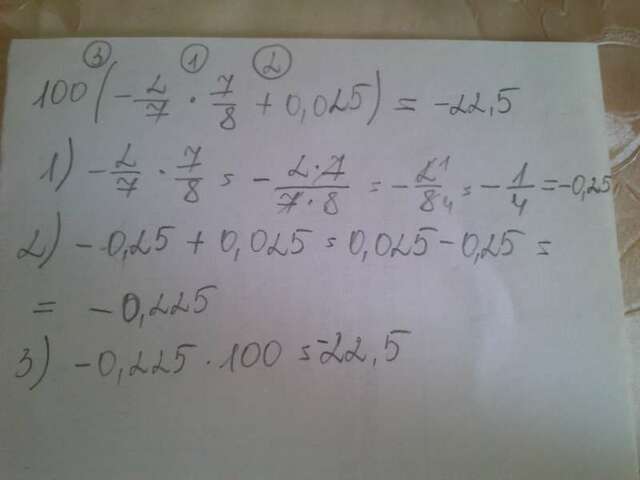 ③ ① ②
100(-2/7 · 7/8 + 0,025) = -22,5
1) -2/7 · 7/8 = -2·7/7·8 = -2¹/8₄ = -1/4 = -0,25
2) -0,25 + 0,025 = 0,025 - 0,25 =
= -0,225
3) -0,225 · 100 = -22,5